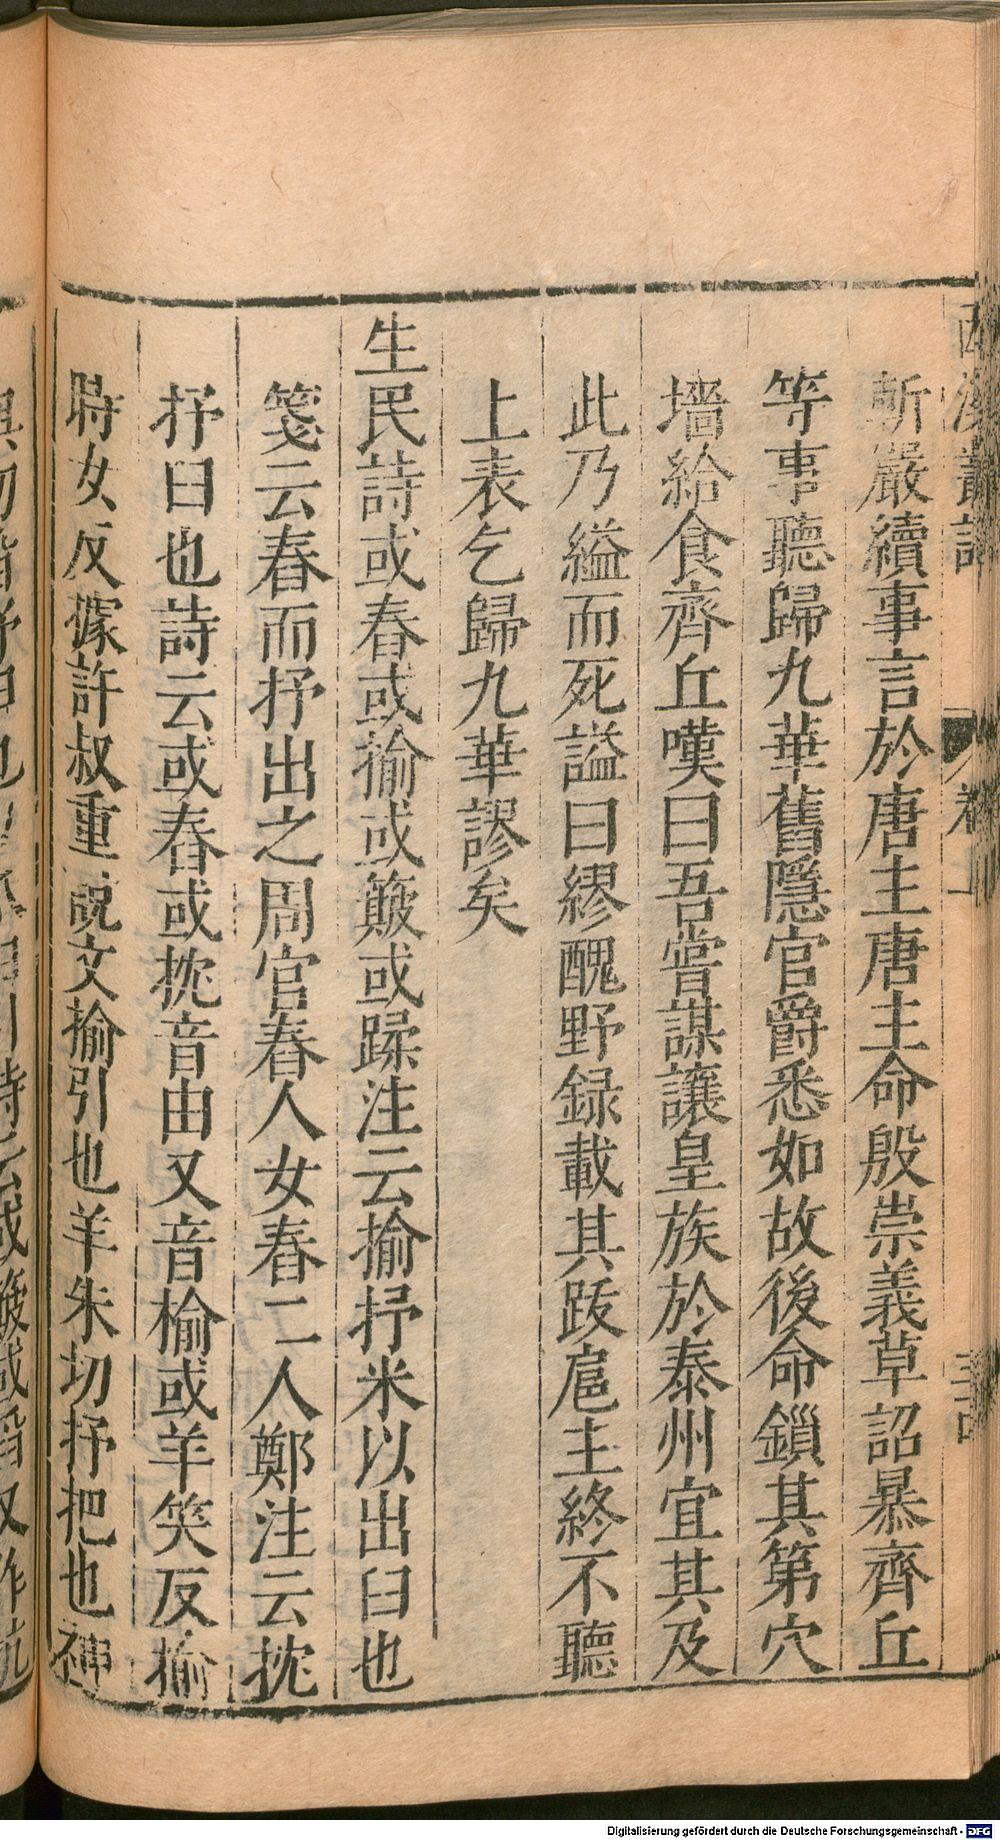 斬嚴續事言於唐主唐主命殷崇義草詔暴齊丘
等事聽歸九華舊隱官爵悉如故後命鎖其第穴
墻給食齊丘嘆曰吾嘗謀讓皇族於泰州宜其及
此乃縊而死謚曰繆醜野録載其跋扈主終不聽
上表乞歸九華謬矣
生民詩或舂或揄或簸或蹂注云揄抒米以出臼也
箋云舂而抒出之周官舂人女舂二人鄭注云抌
抒臼也詩云或舂或抌音由又音榆或羊笑反揄
時女反據許叔重說文揄引也羊朱切抒把也神
Digitalisierung gefördert durch die Deutsche Forschungsgemeinschaft - DFG